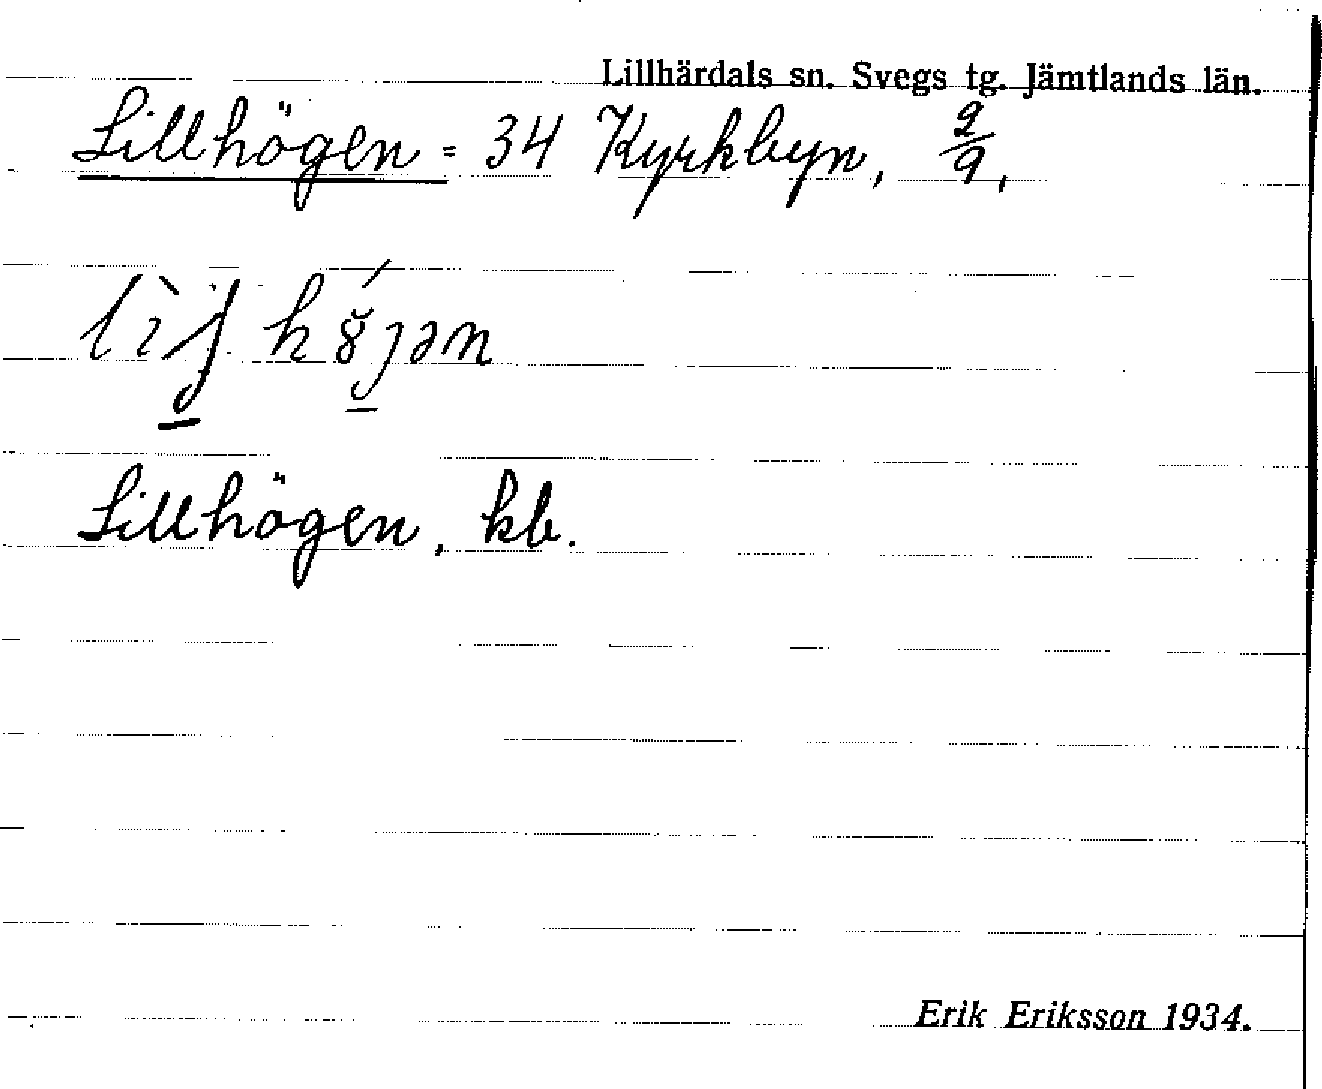 Lillhärdals sn. Svegs tg. Jämtlands län.
Lillhögen = 34 Kyrkbyn, 2/9,
Lillhögen, kb.
Erik Eriksson 1934.